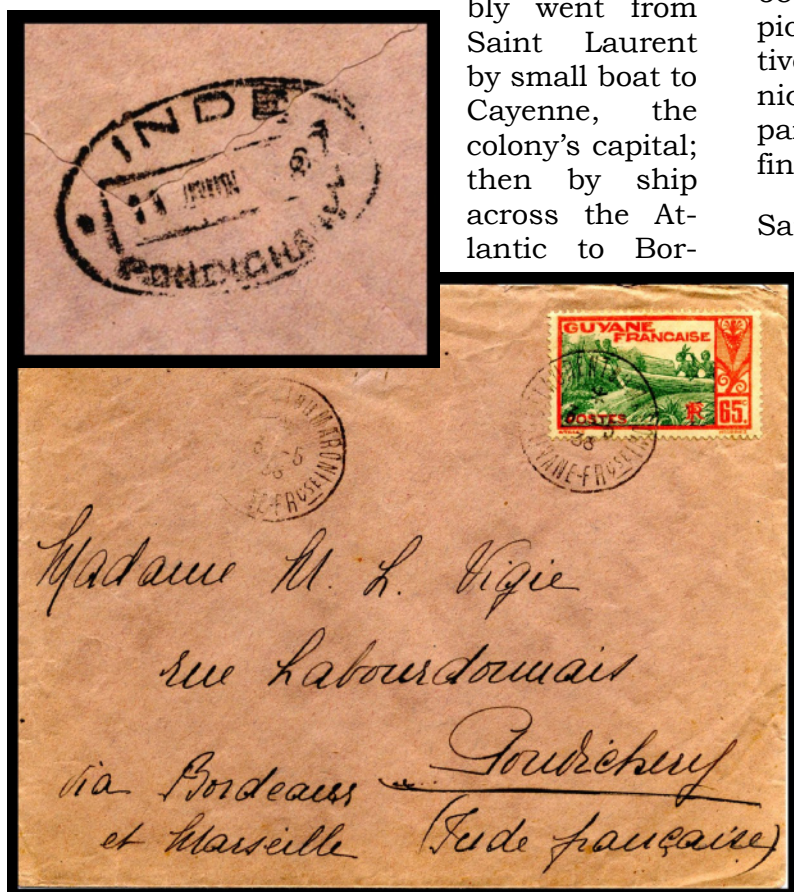 bly went from
Saint Laurent
by small boat to
Cayenne, the
colony's capital;
then by ship
across the At-
lantic to Bor-
fin
Sa
INDE
11
PONDICHERY
GUYANE
FRANCAISE
POSTES
RF
65c
MARONI
5
38
5
38
GUYANE-FRSE
Madame M. L. Vigie
rue Labourdonnais
Pondichery
via Bordeaux
et Marseille (Inde française)